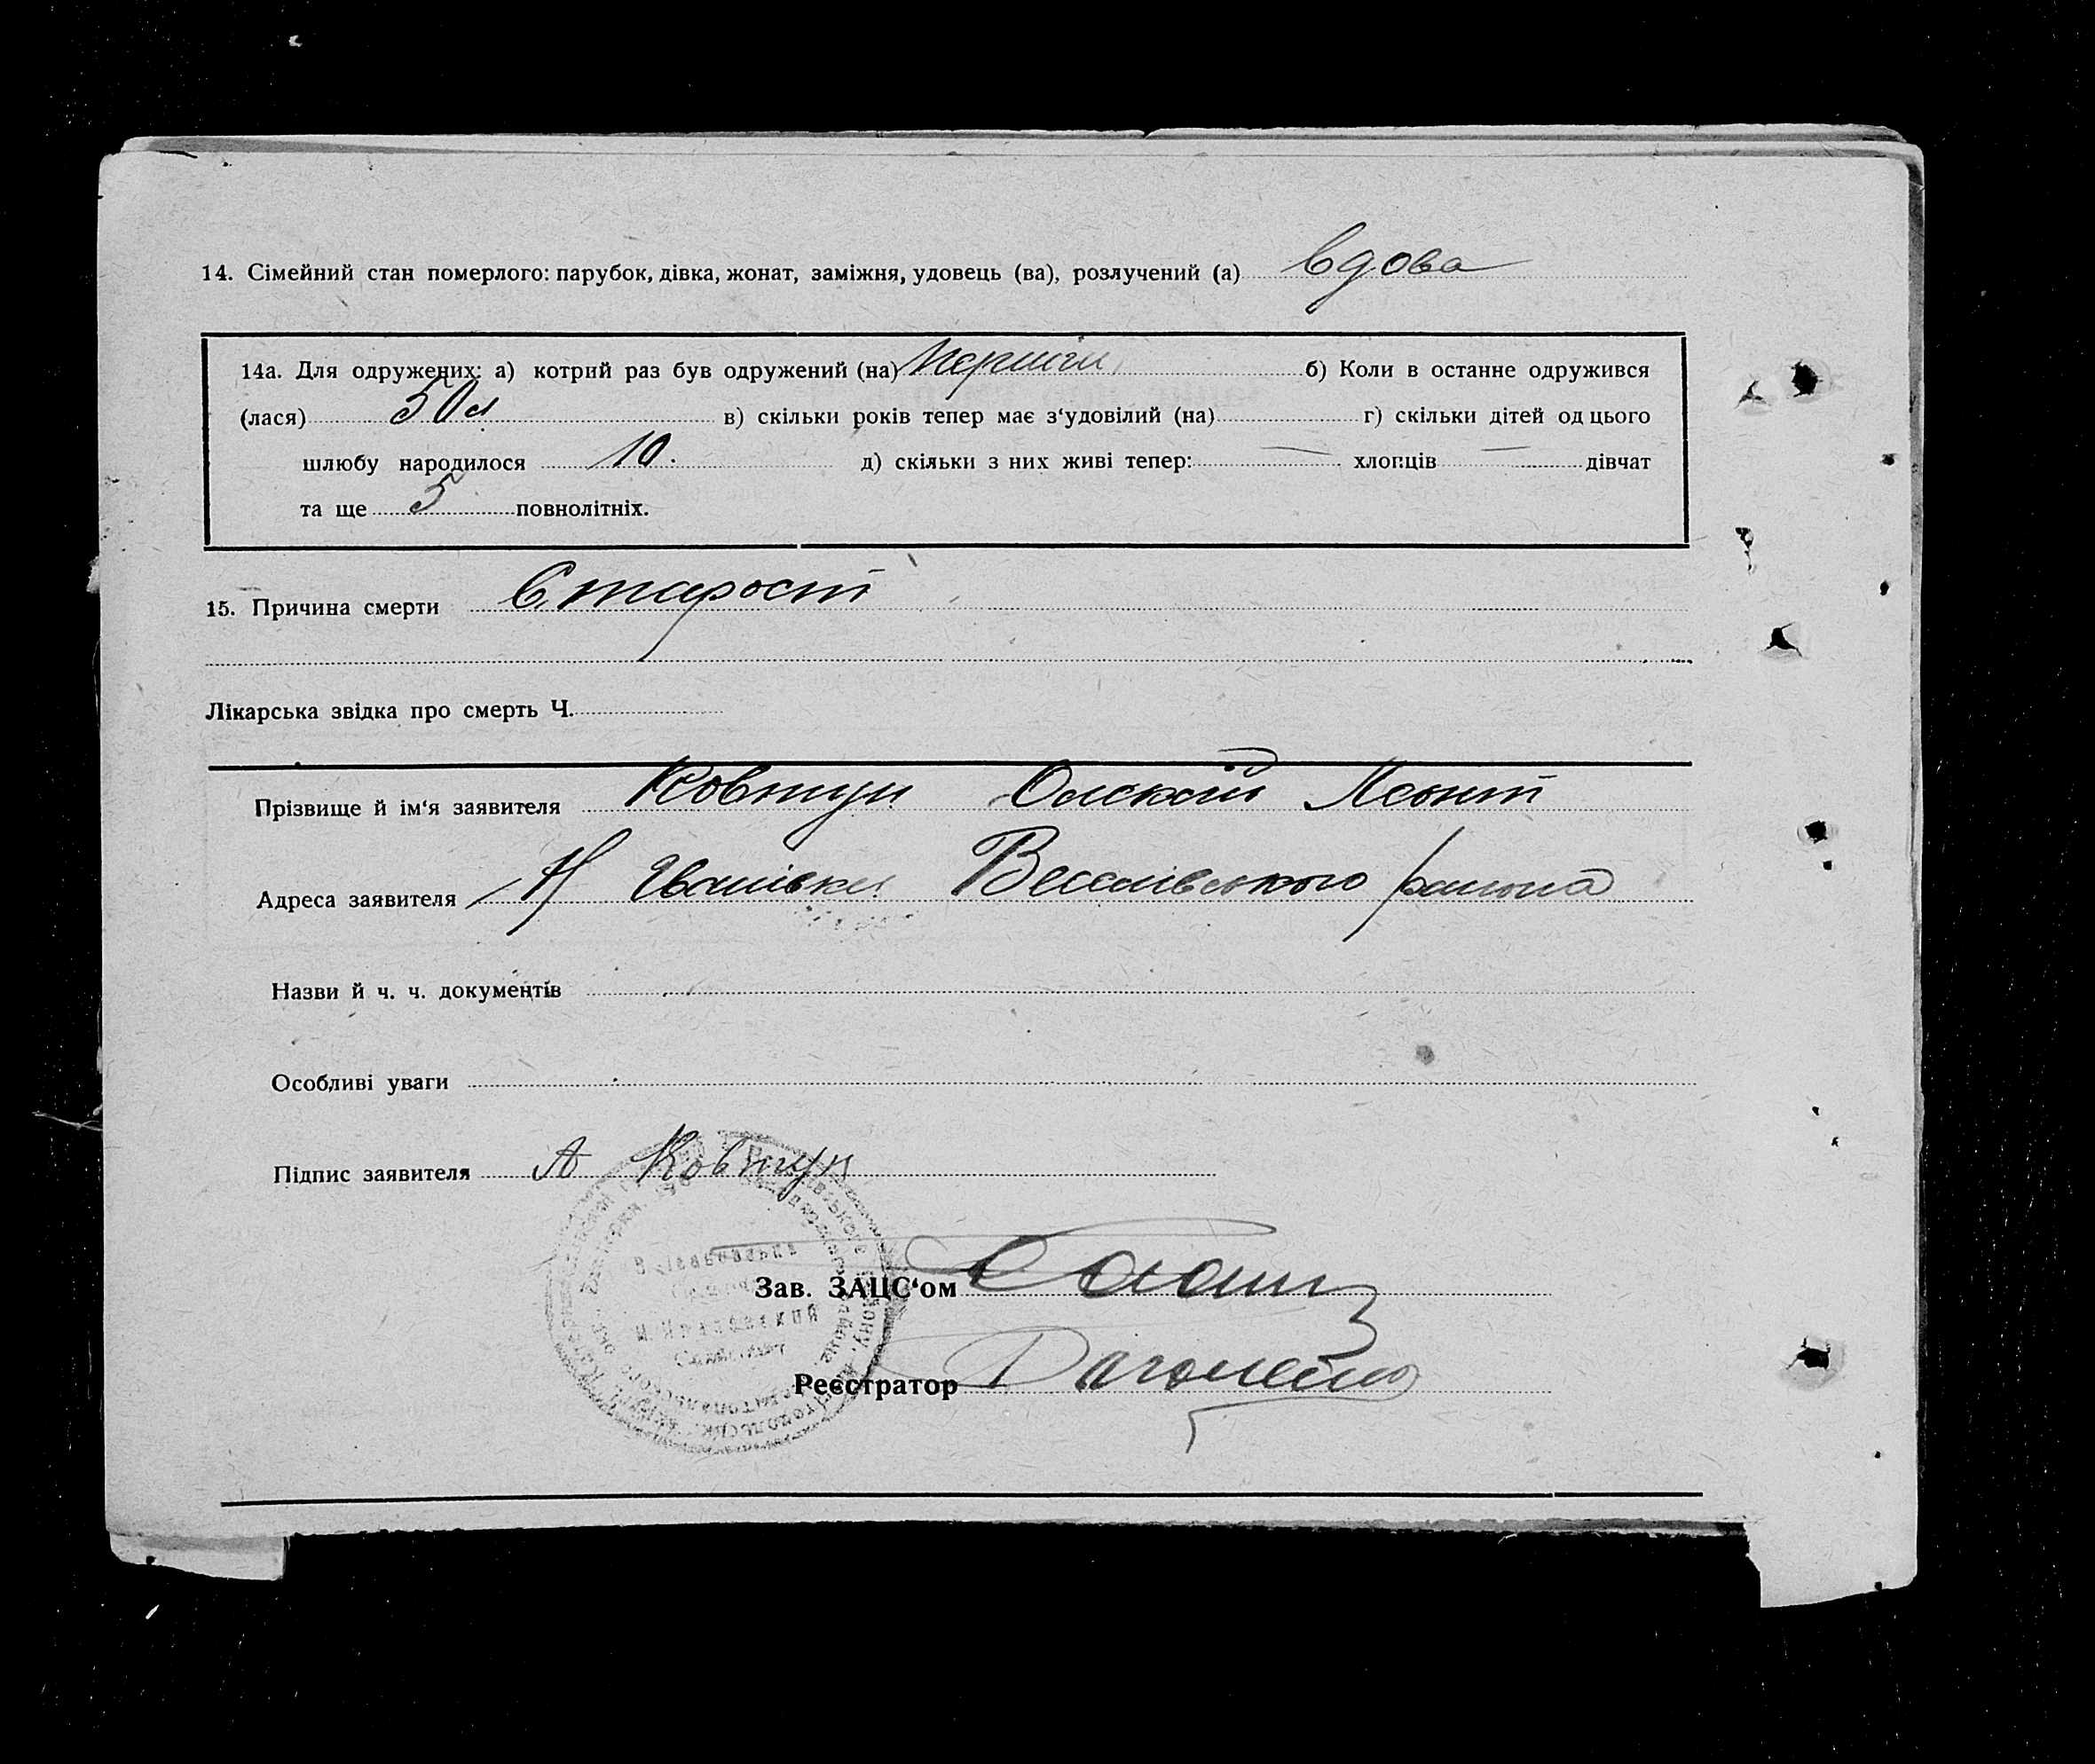 14. Сімейний стан померлого: парубок, дівка, жонат, заміжня, удовець (ва), розлучений (а) вдова
14а. Для одружених: а) котрий раз був одружений (на) перший б) Коли в останне одружився
(лася) 50 л в) скільки років тепер має з‘удовілий (на) г) скільки дітей од цього
шлюбу народилося 10. д) скільки з них живі тепер: — хлопців — дівчат
та ще 5 повнолітніх.
15. Причина смерти Старост
Лікарська звідка про смерть Ч.
Прізвище й ім‘я заявителя Ковтун Олексій Леонт
Адреса заявителя Н Іванівка Веселівського района
Назви й ч. ч. документів
Особливі уваги
Підпис заявителя А Ковтун
Зав. ЗАЦС‘ом
Реєстратор